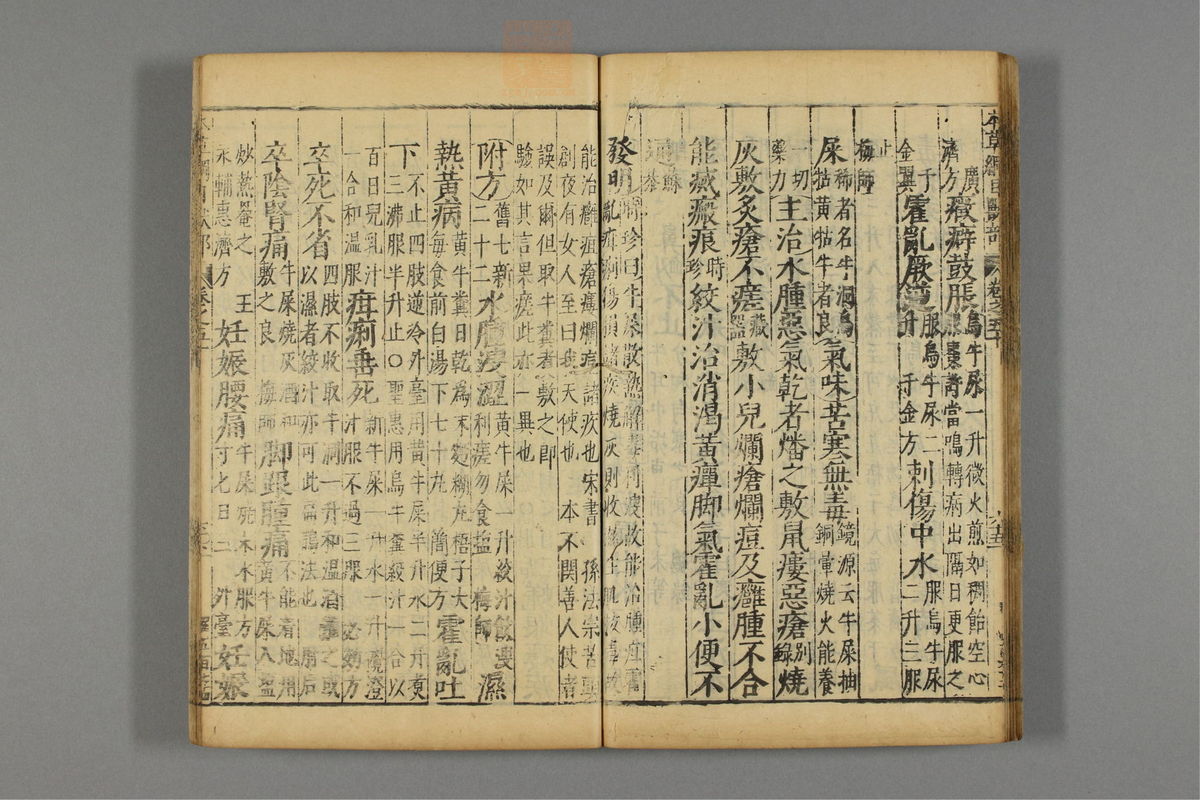 本草綱目獸部 卷之五十
廣
濟方 癥癖鼓脹 烏牛尿一升微火煎如稠飴空心
服棗許當鳴轉病出隔日更服之
千
金翼 霍亂厥逆 服烏牛尿二
升 千金方 刺傷中水 服烏牛尿
二升三服
止
梅師
屎 稀者名牛洞烏
牯黃牯牛者良 氣味苦寒無毒 鏡源云牛屎抽
銅暈燒火能養
一切
藥力 主治水腫惡氣乾者燔之敷鼠瘻惡瘡 別
錄 燒
灰敷炙瘡不瘥 藏
器 敷小兒爛瘡爛痘及癰腫不合
能滅瘢痕 時
珍 絞汁治消渴黃癉脚氣霍亂小便不
通 蘇
恭
發明 時珍曰牛屎散熱解毒利溲故能治腫疸霍
亂疳痢傷損諸疾燒灰則收濕生肌拔毒故
能治癰疽瘡瘻爛痘諸疾也宋書 孫法宗苦頭
創夜有女人至曰我天使也 本不關善人使者
誤及爾但取牛糞煮敷之即
驗如其言果瘥此亦一異也
附方 舊七新
二十二 水腫溲澀 黃牛屎一升絞汁飲溲
利瘥勿食鹽 梅師 濕
熱黃病 黃牛糞日乾爲末麪糊丸梧子大
每食前白湯下七十丸 簡便方 霍亂吐
下 不止四肢逆冷外臺用黃牛屎半升水二升煮
三沸服半升止○聖惠用烏牛糞絞汁一合以
百日兒乳汁
一合和溫服 疳痢垂死 新牛屎一升水一升攪澄
汁服不過三服 必効方
卒死不省 四肢不收取牛洞一升和溫酒灌之或
以濕者絞汁亦可此扁鵲法也 肘后
卒陰腎痛 牛屎燒灰酒和
敷之良 梅師 脚跟腫痛 不能着地用
黃牛屎入鹽
炒熱罨之 王
永輔惠濟方 妊娠腰痛 牛屎燒末水服方
寸匕日三 外臺 妊娠